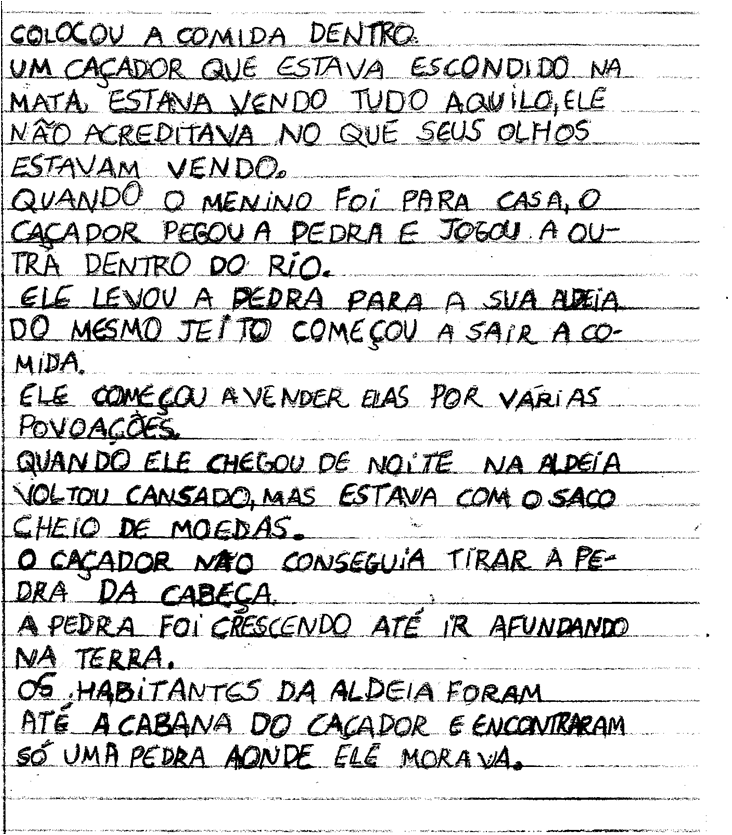 COLOCOU A COMIDA DENTRO.
UM CAÇADOR QUE ESTAVA ESCONDIDO NA
MATA, ESTAVA VENDO TUDO AQUILO, ELE
NÃO ACREDITAVA NO QUE SEUS OLHOS
ESTAVAM VENDO.
QUANDO O MENINO FOI PARA CASA, O
CAÇADOR PEGOU A PEDRA E JOGOU A OU-
TRA DENTRO DO RIO.
ELE LEVOU A PEDRA PARA A SUA ALDEIA
DO MESMO JEITO COMEÇOU A SAIR A CO-
MIDA.
ELE COMEÇOU A VENDER ELAS POR VÁRIAS
POVOAÇÕES.
QUANDO ELE CHEGOU DE NOITE NA ALDEIA
VOLTOU CANSADO, MAS ESTAVA COM O SACO
CHEIO DE MOEDAS.
O CAÇADOR NÃO CONSEGUIA TIRAR A PE-
DRA DA CABEÇA.
A PEDRA FOI CRESCENDO ATÉ IR AFUNDANDO
NA TERRA.
OS HABITANTES DA ALDEIA FORAM
ATÉ A CABANA DO CAÇADOR E ENCONTRARAM
SÓ UMA PEDRA AONDE ELE MORAVA.